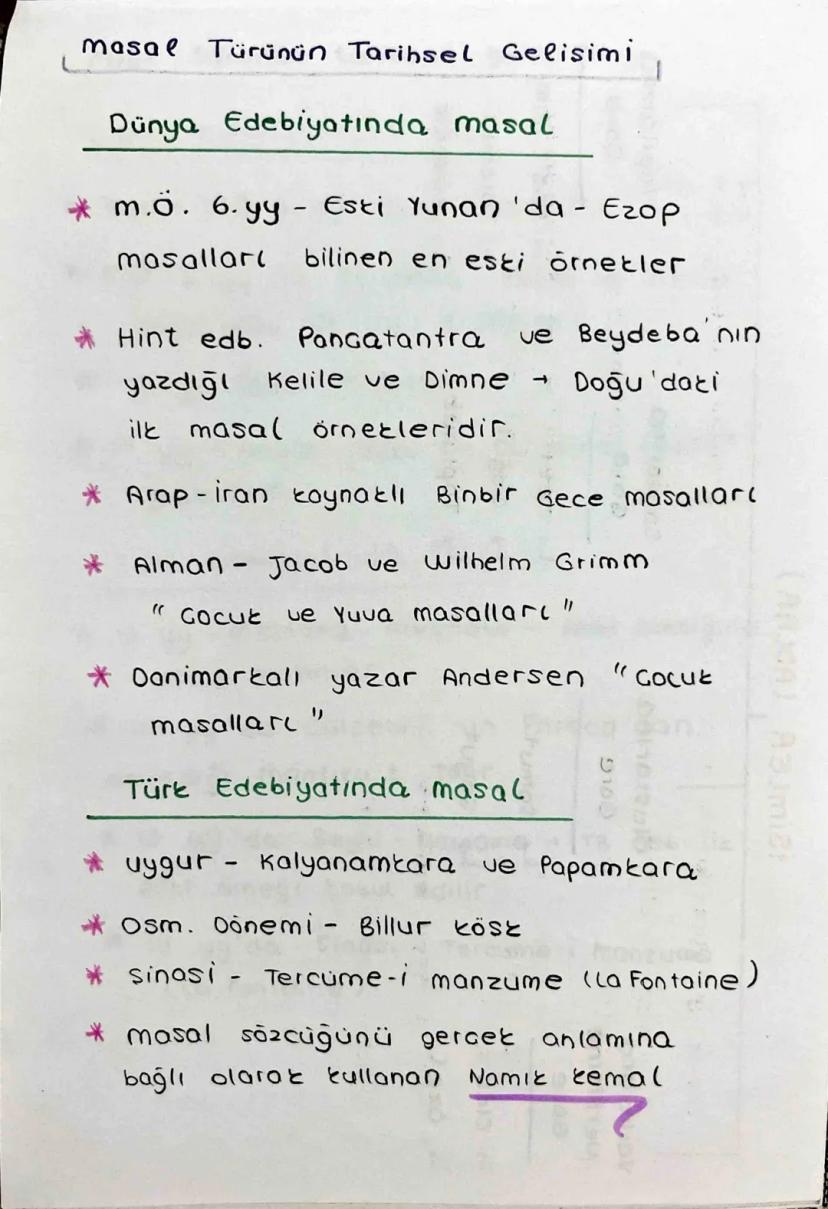 masal Türünün Tarihsel Gelisimi
Dünya Edebiyatında masal
* m.Ö. 6.yy - Eski Yunan 'da - Ezop
masalları bilinen en eski örnekler
* Hint edb. Pancatantra ve Beydeba'nın
yazdığı Kelile ve Dimne → Doğu'daki
ilk masal örnekleridir.
* Arap-iran kaynaklı Binbir Gece masalları
* Alman - Jacob ve Wilhelm Grimm
" Cocuk ve Yuva masalları "
* Danimarkalı yazar Andersen " Cocuk
masalları "
Türk Edebiyatında masal
* uygur - Kalyanamkara ve Papamkara
* Osm. Dönemi - Billur köşk
* sinasi - Tercüme-i manzume (La Fontaine)
* masal sözcüğünü gercek anlamına
bağlı olarak kullanan Namık kemal